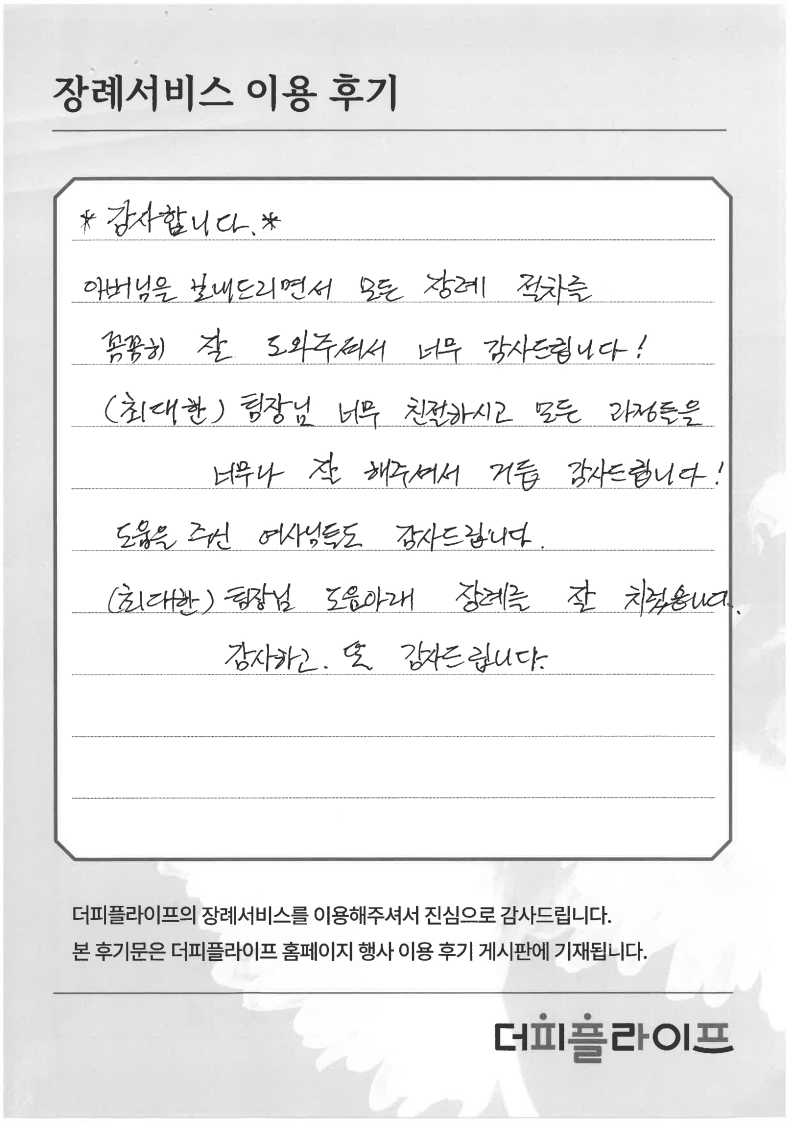 장례서비스 이용 후기
* 감사합니다. *
아버님을 보내드리면서 모든 장례 절차를
꼼꼼히 잘 도와주셔서 너무 감사드립니다!
(최대한) 팀장님 너무 친절하시고 모든 과정들을
너무나 잘 해주셔서 거듭 감사드립니다!
도움을 주신 여사님들도 감사드립니다.
(최대한) 팀장님 도움아래 장례를 잘
감사하고. 또 감사드립니다.
더피플라이프의 장례서비스를 이용해주셔서 진심으로 감사드립니다.
본 후기문은 더피플라이프 홈페이지 행사 이용 후기 게시판에 기재됩니다.
더피플라이프